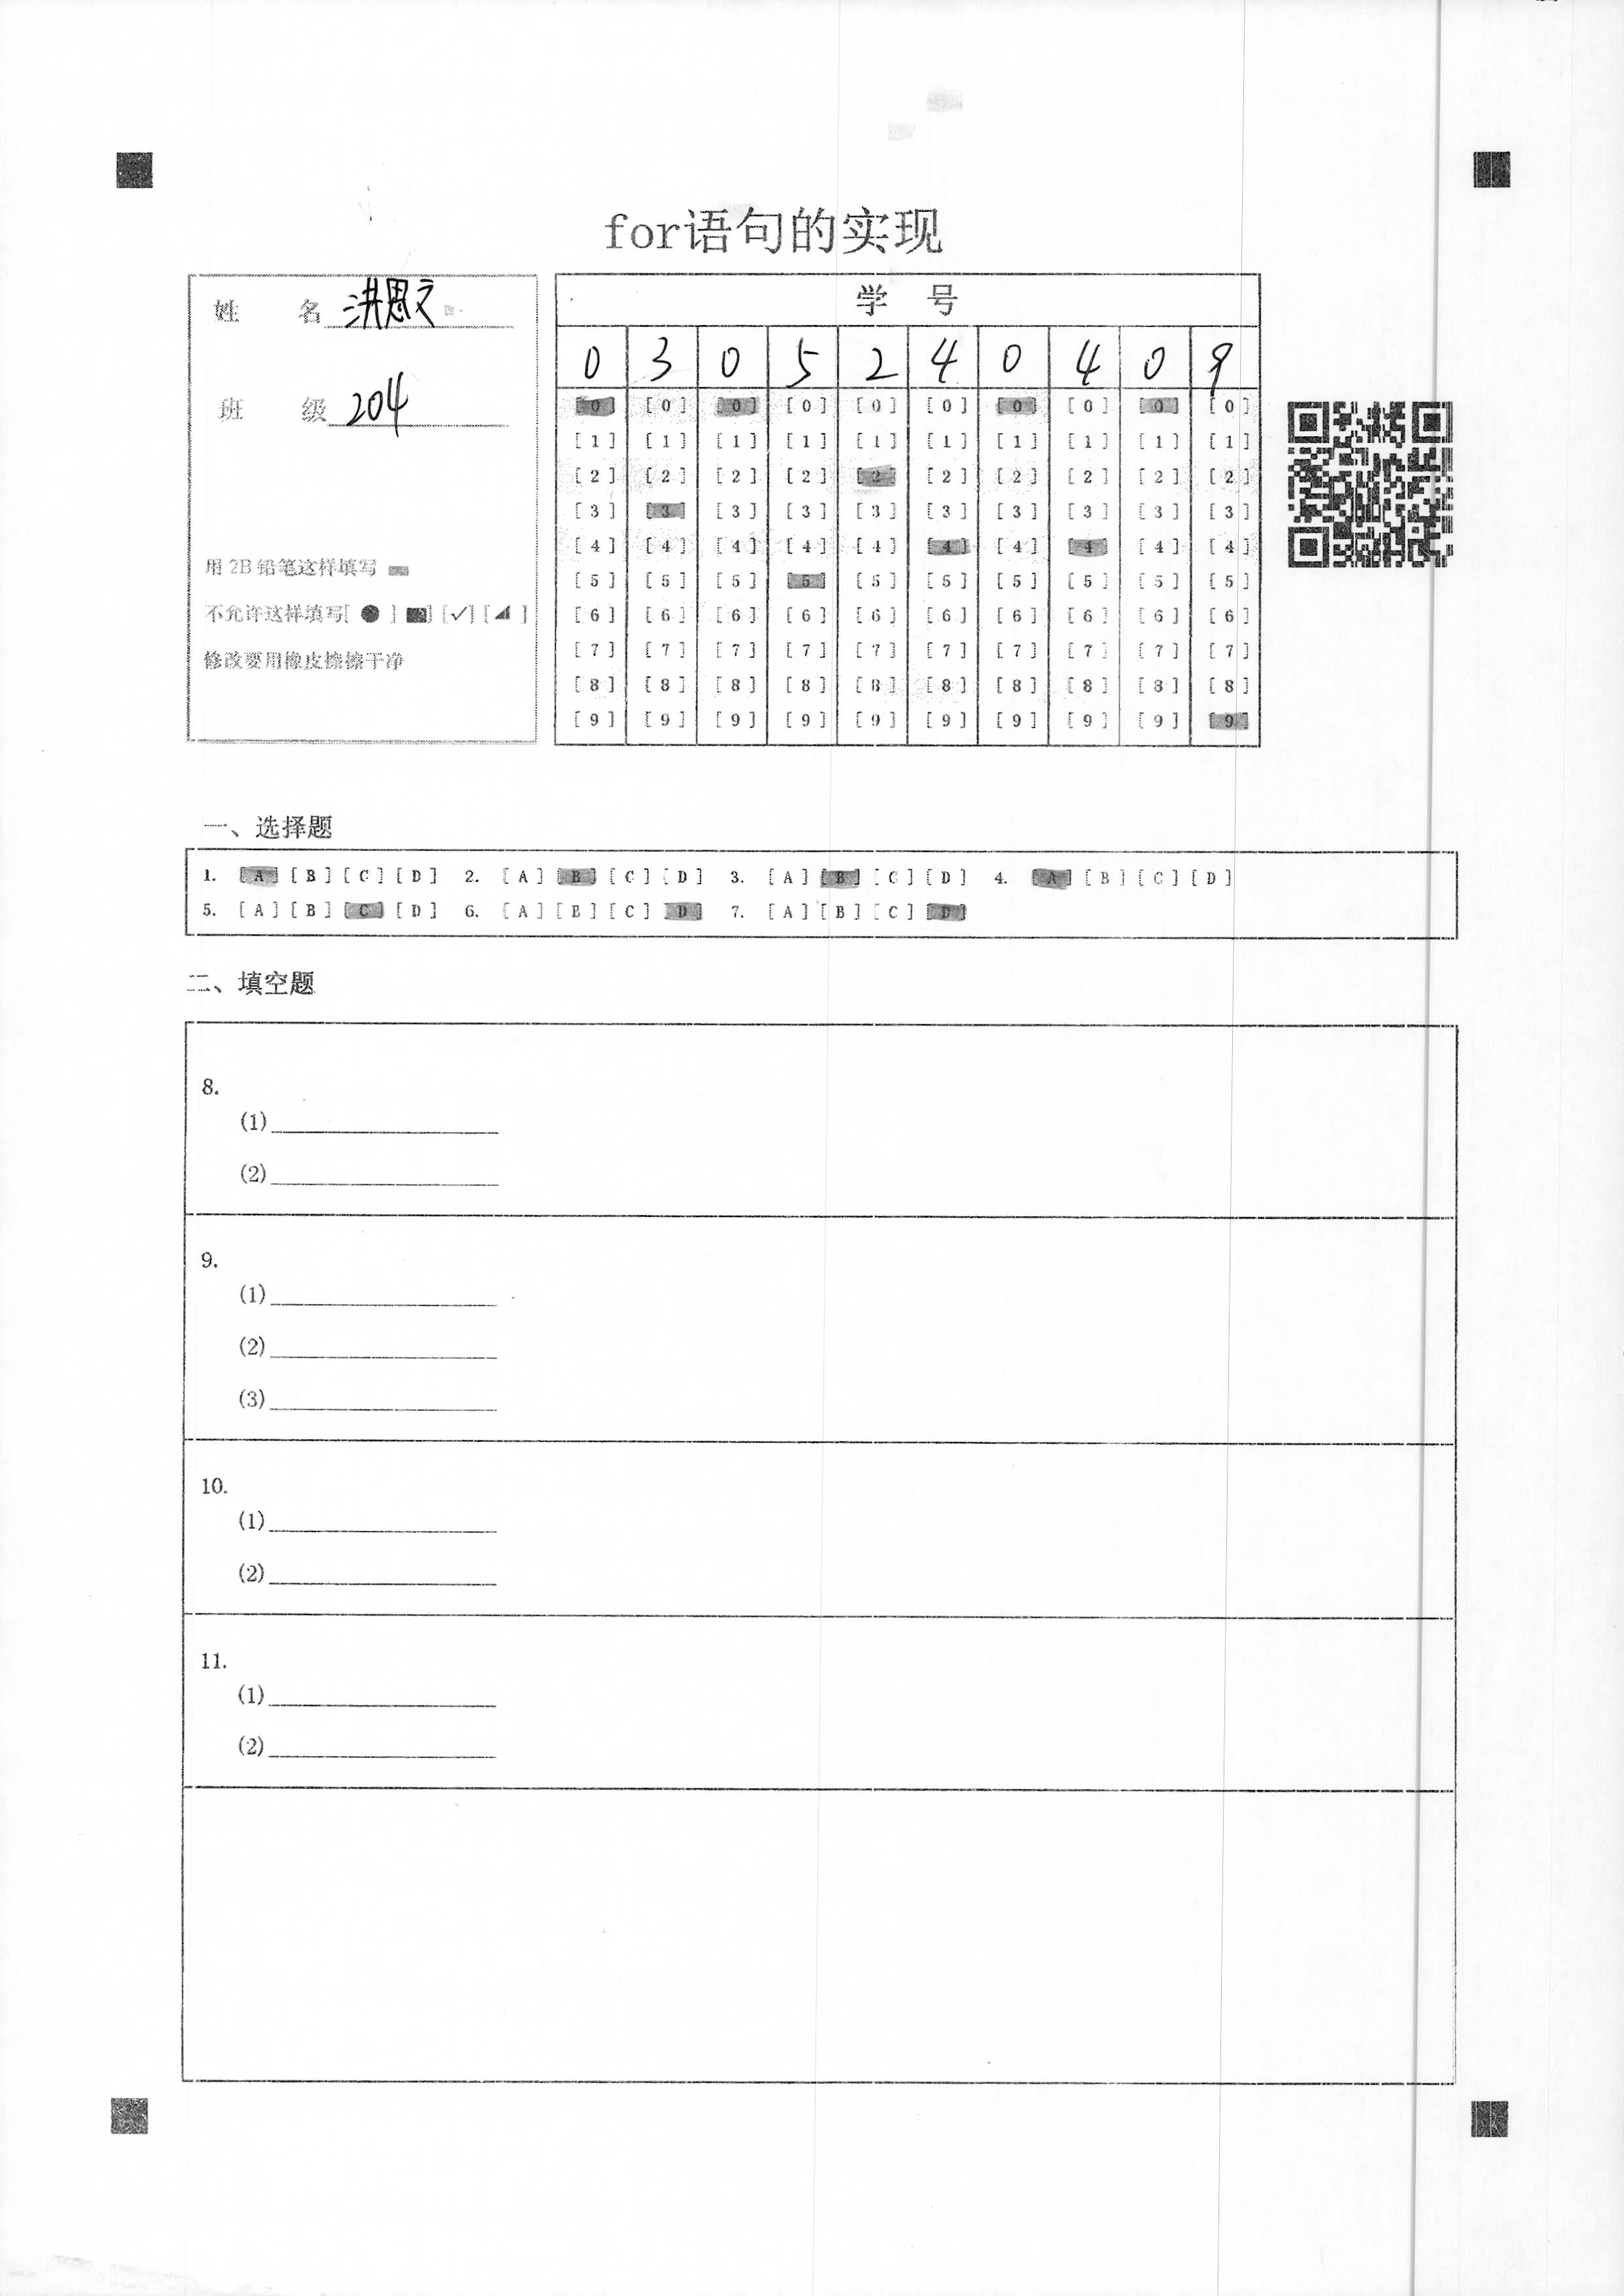 for语句的实现
姓 名 洪思文
班 级 204
用 2B 铅笔这样填写
不允许这样填写[ ● ] [■] [✓] [◢ ]
修改要用橡皮擦擦干净
学 号
0 3 0 5 2 4 0 4 0 9
[0] [0] [0] [0] [0] [0] [0] [0] [0] [0]
[1] [1] [1] [1] [1] [1] [1] [1] [1] [1]
[2] [2] [2] [2] [2] [2] [2] [2] [2] [2]
[3] [3] [3] [3] [3] [3] [3] [3] [3] [3]
[4] [4] [4] [4] [4] [4] [4] [4] [4] [4]
[5] [5] [5] [5] [5] [5] [5] [5] [5] [5]
[6] [6] [6] [6] [6] [6] [6] [6] [6] [6]
[7] [7] [7] [7] [7] [7] [7] [7] [7] [7]
[8] [8] [8] [8] [8] [8] [8] [8] [8] [8]
[9] [9] [9] [9] [9] [9] [9] [9] [9] [9]
一、选择题
1. [A] [B] [C] [D] 2. [A] [B] [C] [D] 3. [A] [B] [C] [D] 4. [A] [B] [C] [D]
5. [A] [B] [C] [D] 6. [A] [B] [C] [D] 7. [A] [B] [C] [D]
二、填空题
8.
(1)
(2)
9.
(1)
(2)
(3)
10.
(1)
(2)
11.
(1)
(2)